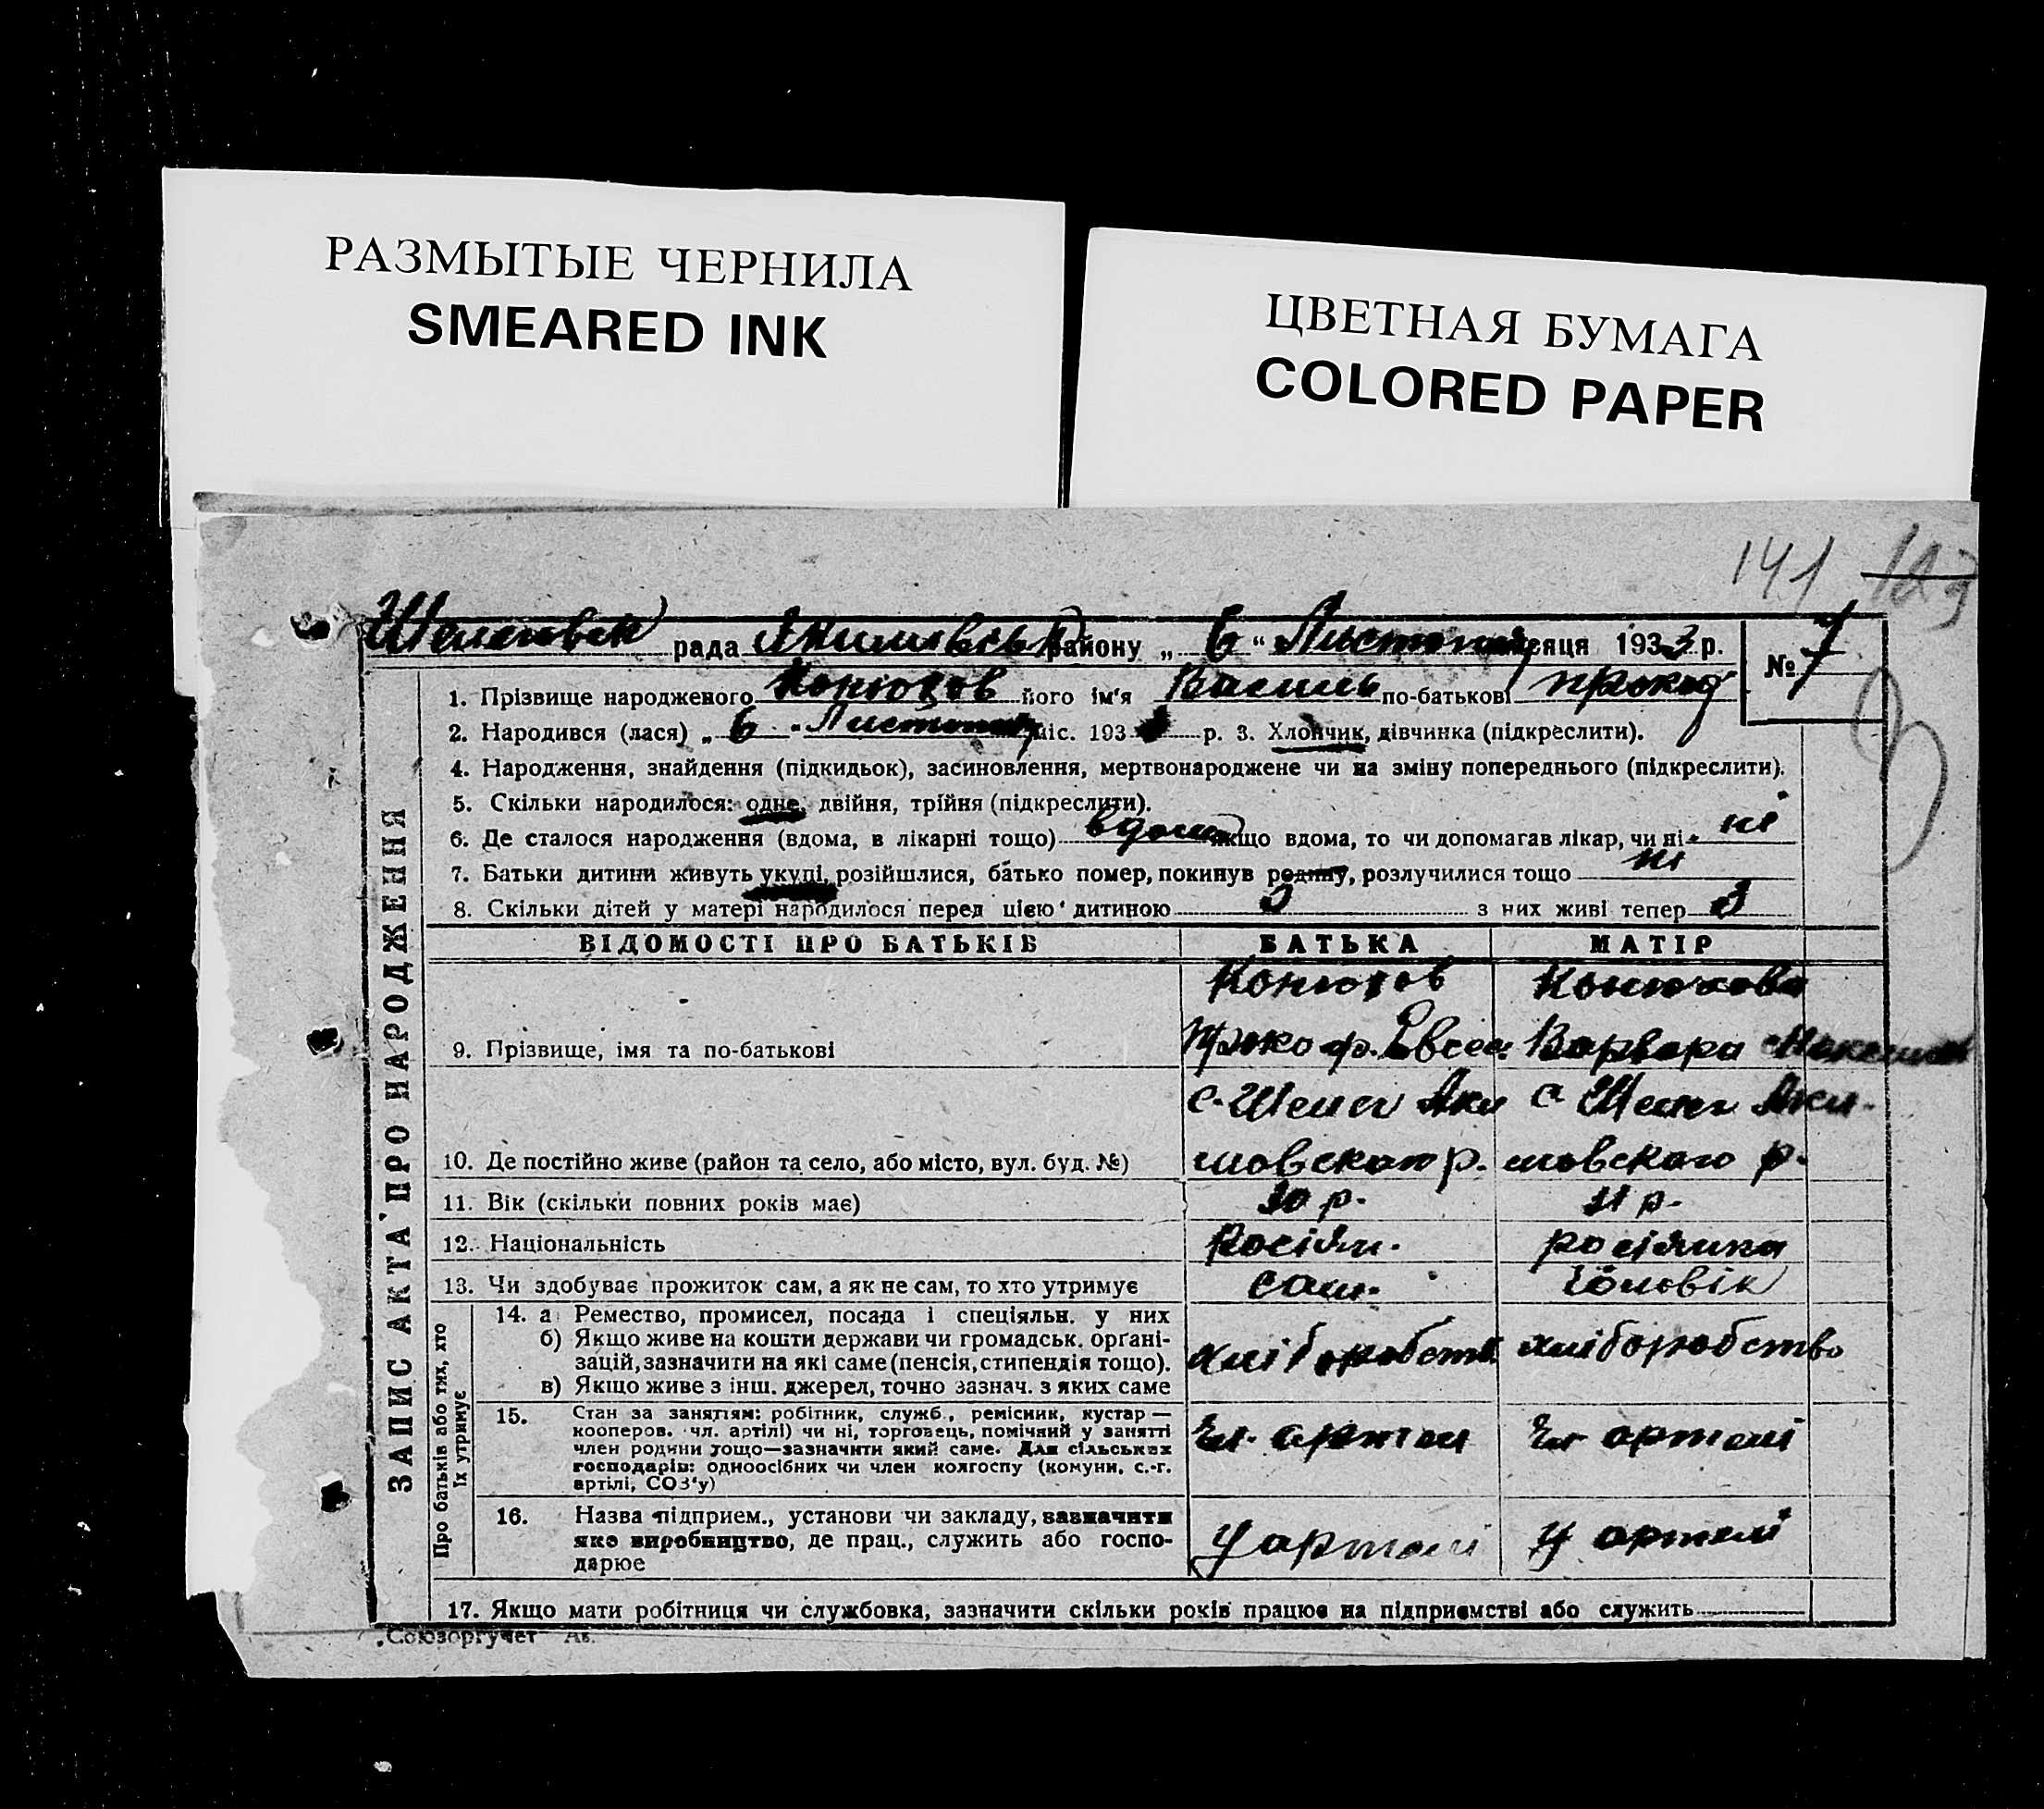 РАЗМЫТЫЕ ЧЕРНИЛА
SMEARED INK
ЦВЕТНАЯ БУМАГА
COLORED PAPER
141 123
рада Якимівськ району „ 6 “ Листопад місяця 1933 р. № 7
ЗАПИС АКТА ПРО НАРОДЖЕННЯ
1. Прізвище народженого Конюхов його ім'я Василь по-батькові Прокоф
2. Народився (лася) „ 6 “ Листопад міс. 1933 р. 3. Хлопчик, дівчинка (підкреслити).
4. Народження, знайдення (підкидьок), засиновлення, мертвонароджене чи на зміну попереднього (підкреслити).
5. Скільки народилося: одне, двійня, трійня (підкреслити).
6. Де сталося народження (вдома, в лікарні тощо) вдома якщо вдома, то чи допомагав лікар, чи ні ні
7. Батьки дитини живуть укупі, розійшлися, батько помер, покинув родину, розлучилися тощо ні
8. Скільки дітей у матері народилося перед цією дитиною 3 з них живі тепер 3
ВІДОМОСТІ ПРО БАТЬКІВ БАТЬКА МАТІР
Конюхов Конюхова
9. Прізвище, імя та по-батькові Прокоф. Евсев. Варвара
с. Шелюг Аки с. Шелюг Аки-
10. Де постійно живе (район та село, або місто, вул. буд. №) мовского р. мовского р.
11. Вік (скільки повних років має) 30 р. 31 р.
12. Національність Росіян. росіянка
13. Чи здобуває прожиток сам, а як не сам, то хто утримує сам. Чоловік
Про батьків або тих, хто їх утримує
14. а Ремество, промисел, посада і спеціяльн. у них
б) Якщо живе на кошти держави чи громадськ. орґані-
зацій, зазначити на які саме (пенсія, стипендія тощо). хліборобств. хліборобство
в) Якщо живе з інш. джерел, точно зазнач. з яких саме
15. Стан за занятям: робітник, служб., ремісник, кустар —
кооперов. чл. артілі) чи ні, торговець, помічний у занятті
член родини тощо—зазначити який саме. Для сільських чл. артели чл артелі
господарів: одноосібних чи член колгоспу (комуни, с.-г.
артілі, СОЗ'у)
16. Назва підприєм., установи чи закладу, зазначити
яке виробництво, де прац., служить або госпо- У артелі У артелі
дарює
17. Якщо мати робітниця чи службовка, зазначити скільки років працює на підприємстві або служить
„Союзоргучет“